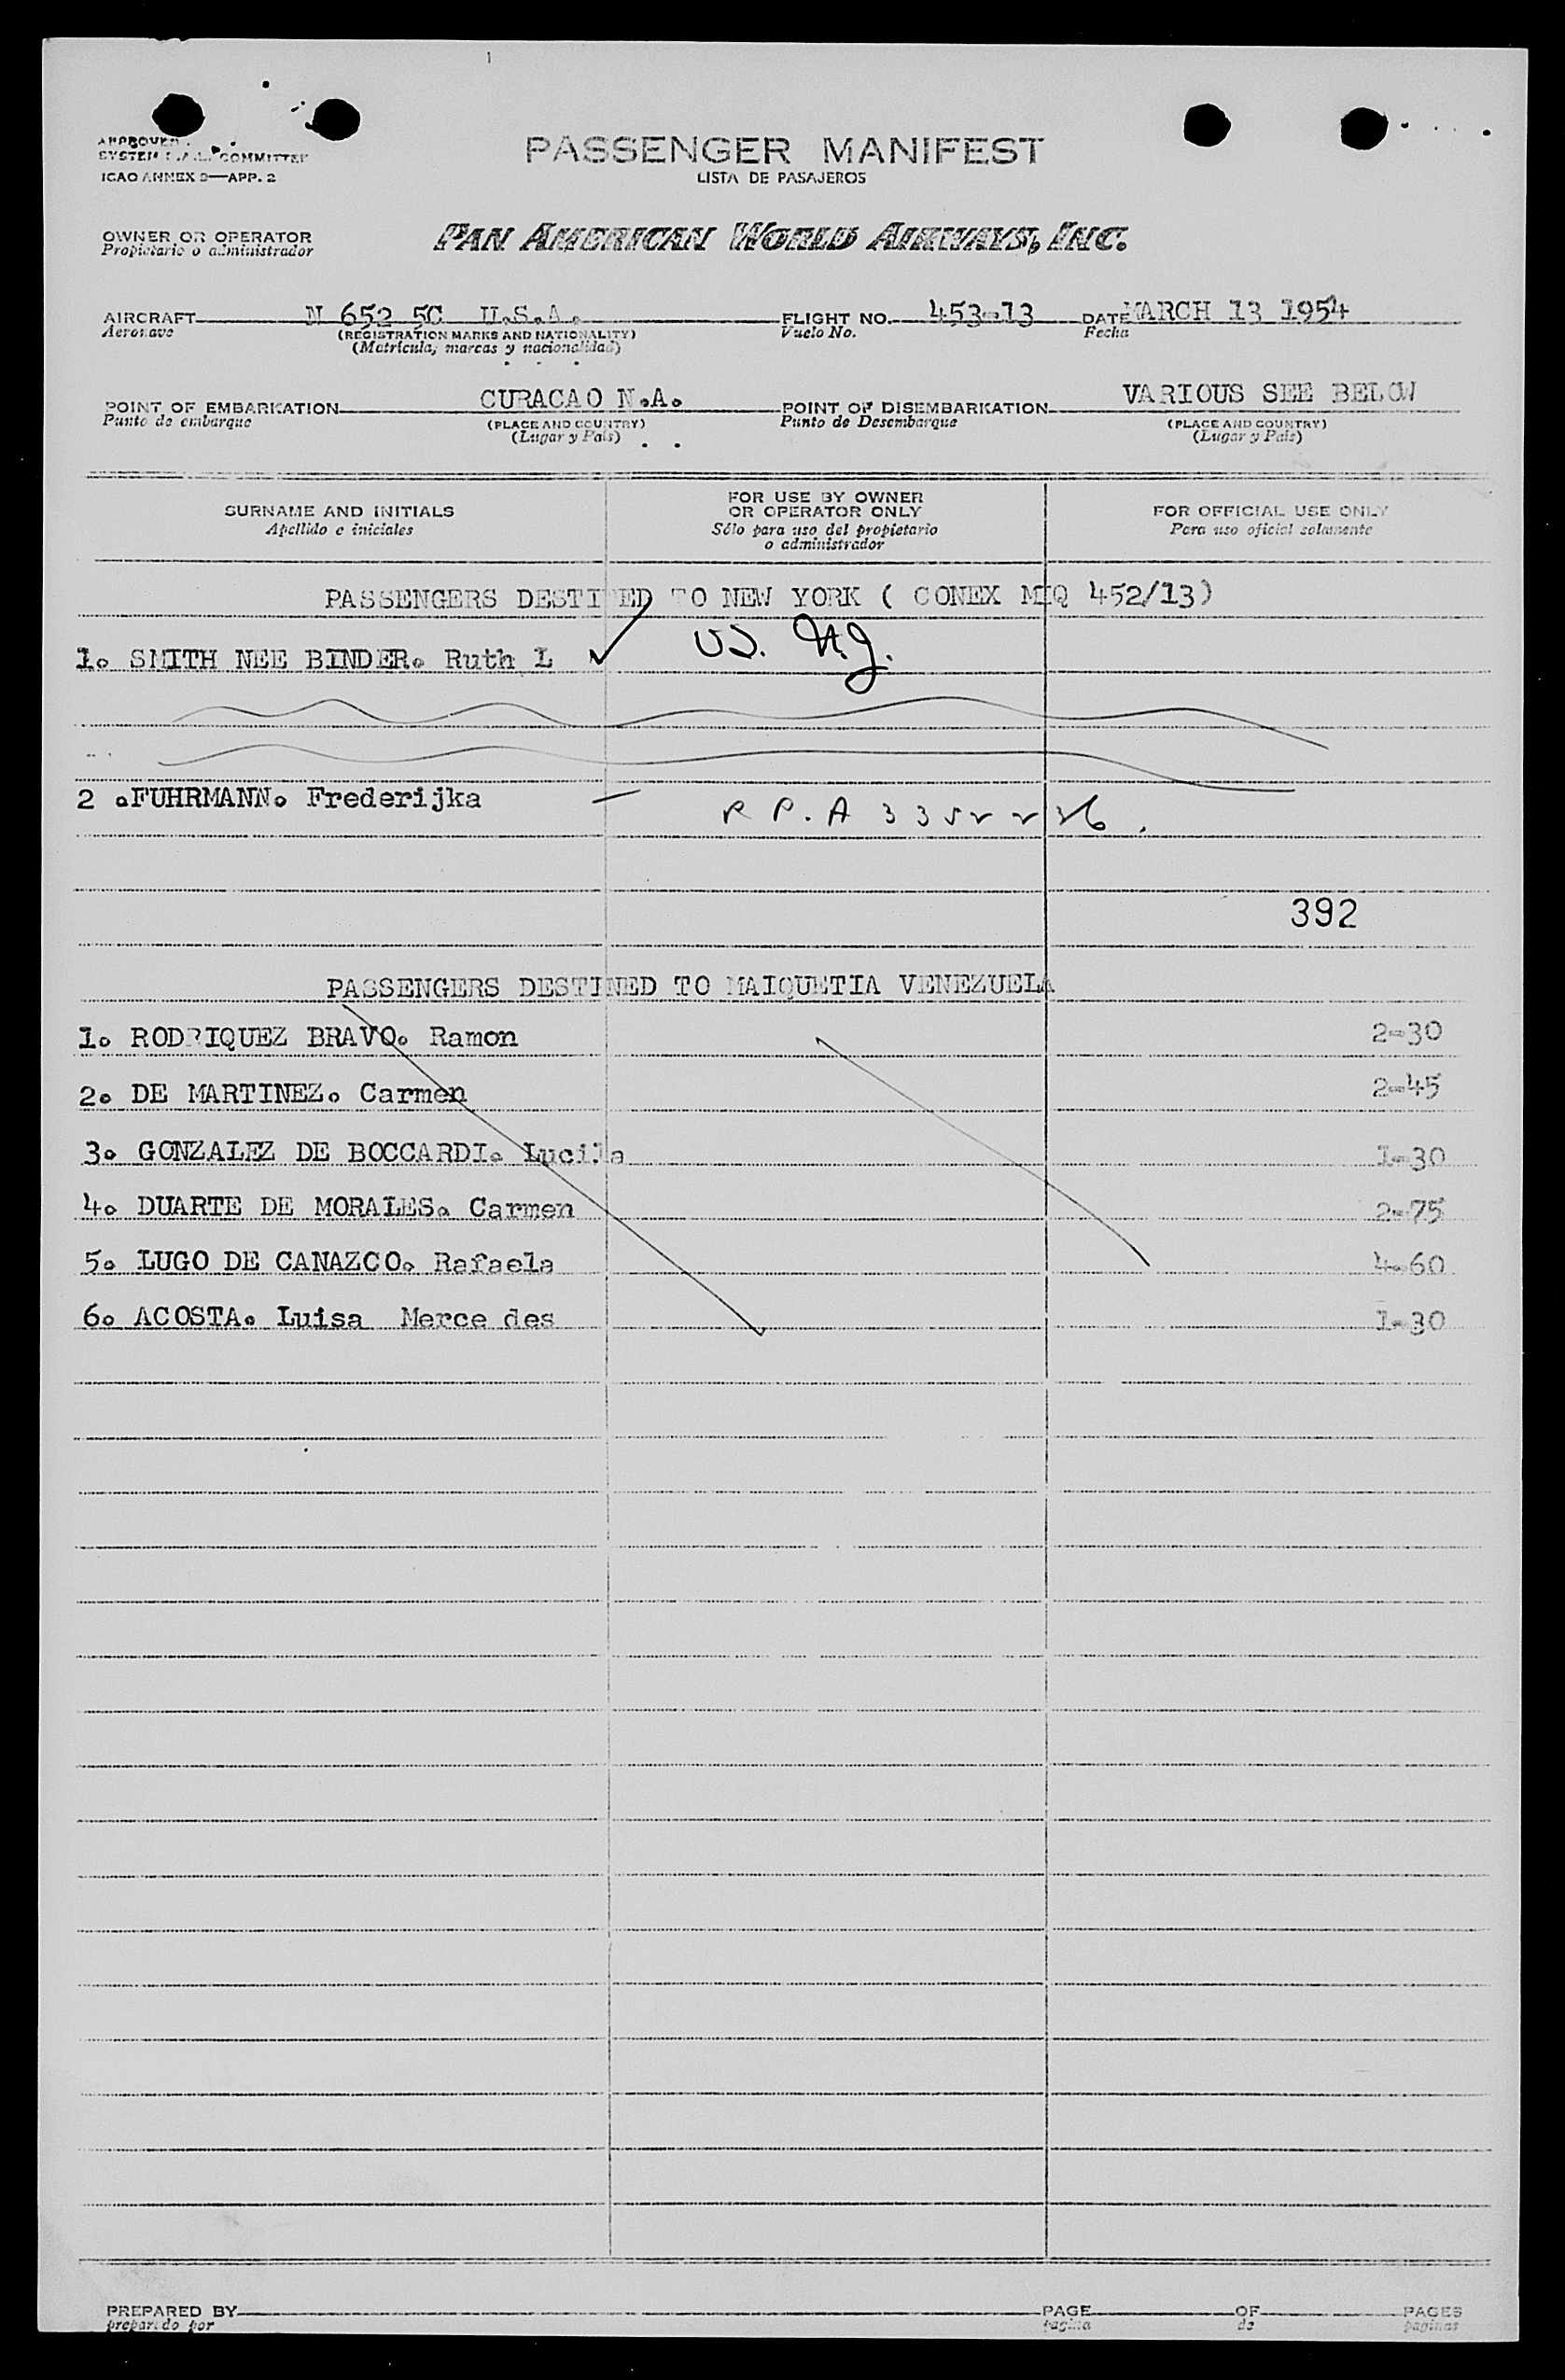 PASSENGER MANIFEST
LISTA DE PASAJEROS
APPROVED
SYSTEM COMMITTEE
ICAO ANNEX 9—APP. 2
OWNER OR OPERATOR
Propietario o administrador
PAN AMERICAN WORLD AIRWAYS, INC.
AIRCRAFT N 652 5C U.S.A. FLIGHT NO. 453-13 DATE MARCH 13 1954
Aeronave (REGISTRATION MARKS AND NATIONALITY) Vuelo No. Fecha
(Matrícula, marcas y nacionalidad)
POINT OF EMBARKATION CURACAO N.A. POINT OF DISEMBARKATION VARIOUS SEE BELOW
Punto de embarque (PLACE AND COUNTRY) Punto de Desembarque (PLACE AND COUNTRY)
(Lugar y País) (Lugar y País)
SURNAME AND INITIALS
Apellido e iniciales
FOR USE BY OWNER
OR OPERATOR ONLY
Sólo para uso del propietario
o administrador
FOR OFFICIAL USE ONLY
Para uso oficial solamente
PASSENGERS DESTINED TO NEW YORK ( CONEX MIQ 452/13)
1. SMITH NEE BINDER. Ruth L US. N.J.
2 .FUHRMANN. Frederijka R P. A
392
PASSENGERS DESTINED TO MAIQUETIA VENEZUELA
1. RODRIQUEZ BRAVO. Ramon 2-30
2. DE MARTINEZ. Carmen 2-45
3. GONZALEZ DE BOCCARDI. Lucila 1-30
4. DUARTE DE MORALES. Carmen 2-75
5. LUGO DE CANAZCO. Rafaela 4-60
6. ACOSTA. Luisa Merce des 1-30
PREPARED BY PAGE OF PAGES
preparado por pagina de paginas